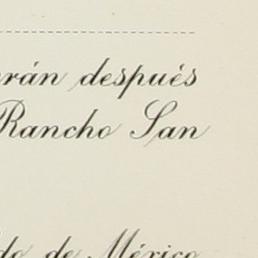 rán después
Rancho San
do de México